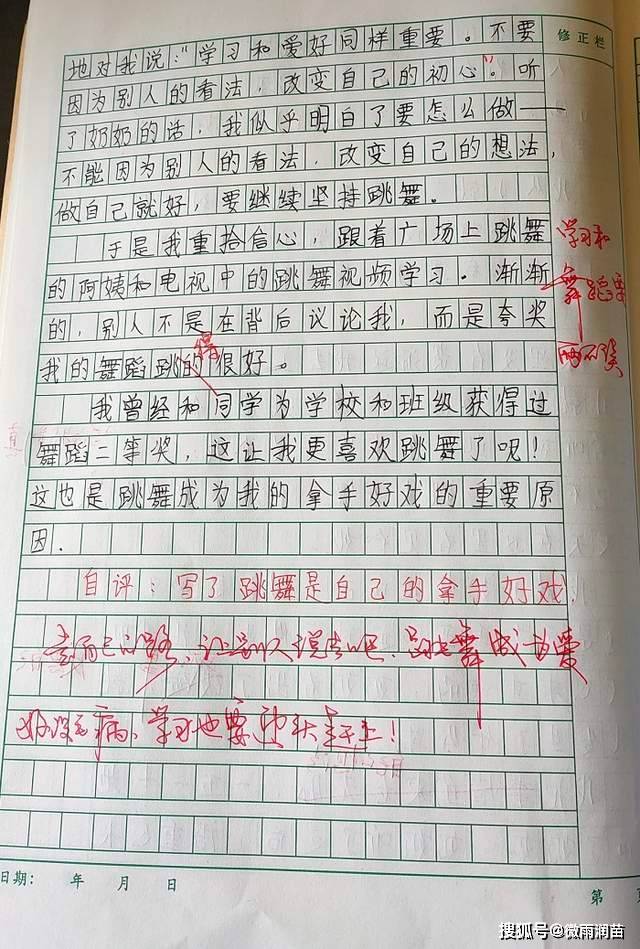 修正栏
地对我说："学习和爱好同样重要。不要
因为别人的看法，改变自己的初心"。听
了奶奶的话，我似乎明白了要怎么做——
不能因为别人的看法，改变自己的想法，
做自己就好，要继续坚持跳舞。
于是我重拾信心，跟着广场上跳舞
的阿姨和电视中的跳舞视频学习。渐渐
的，别人不是在背后议论我，而是夸奖
得
我的舞蹈跳的很好。
学习和
舞蹈要
两不误
我曾经和同学为学校和班级获得过
舞蹈二等奖，这让我更喜欢跳舞了呢！
这也是跳舞成为我的拿手好戏的重要原
因.
自评：写了跳舞是自己的拿手好戏.
走自己的路，让别人说去吧，跳舞成为爱
好没毛病、学习也要迎头赶上！
日期： 年 月 日
第 页
搜狐号@微雨润苗